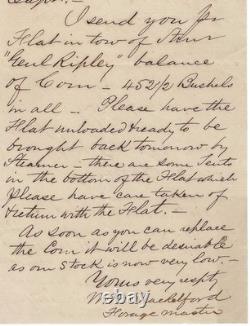 Capt.
I send you Pr
Flat in tow of Stmr
"Genl Ripley" balance
of Corn - 452 1/2 Bushels
in all - Please have the
Flat unloaded & ready to be
brought back tomorrow by
Steamer - there are some Tents
in the bottom of the Flat which
Please have care taken of
& return with the Flat. -
As soon as you can replace
the Corn it will be desirable
as our Stock is now very low. -
Yours very respty
W Shackelford
Forage master